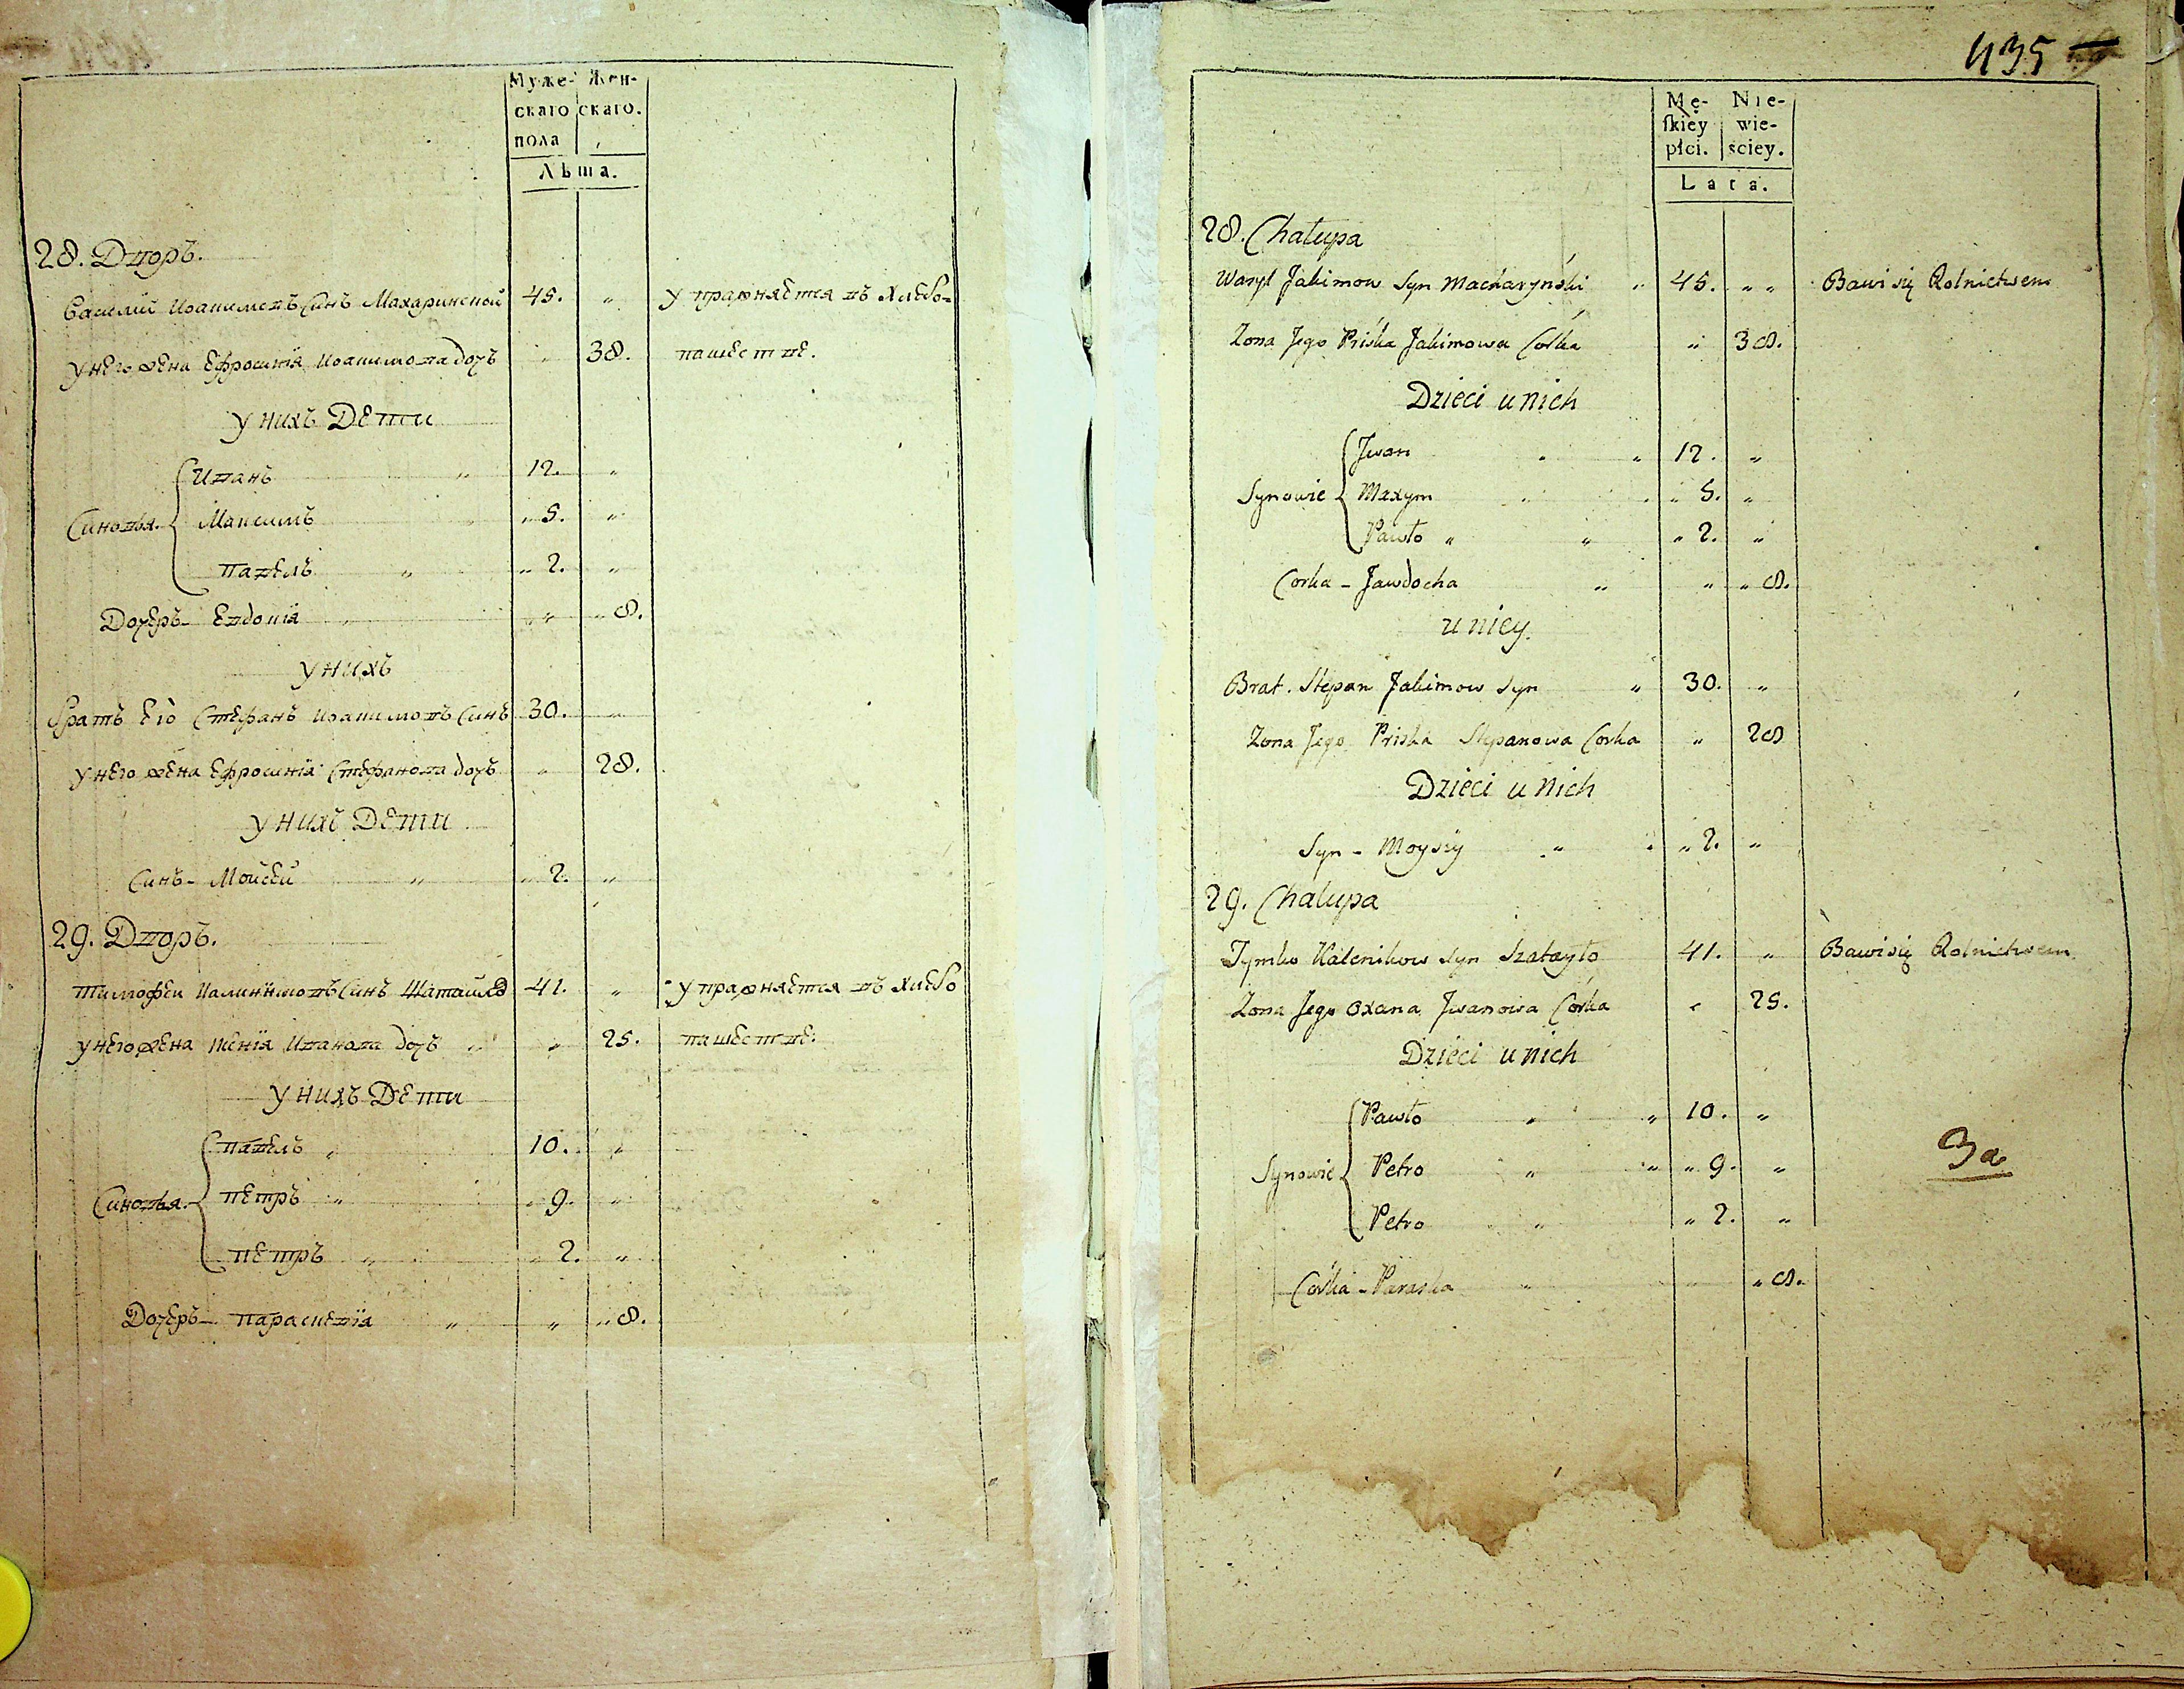 Муже- Жен-
скаго скаго.
пола
Лѣта.
28. Дворъ.
Василий Иоакимовъ Синъ Махаринской 45. „ упражняется въ хлебо=
у него жена Ефросиния Иоакимова дочъ „ 38. пашестве.
у нихъ Дети
Иванъ „ 12. „
Синовья Максимъ „ 5. „
павелъ „ „ 2. „
Дочерь Евдокия „ „ „ 8.
у нихъ
братъ его Стефанъ Иоакимовъ Синъ 30. „
у него жена Ефросиния Стефанова дочъ „ 28.
у нихъ Дети
Синъ - Мойсей „ „ 2. „
29. Дворъ.
тимофеи Калинниковъ Синъ Шатайло 41. „ упражняется въ хлебо
у него жена Ксения Иванова дочъ „ „ 25. пашестве:
у нихъ Дети
павелъ „ 10. „
Синовья петръ „ „ 9. „
петръ „ „ 2. „
Дочерь - парасковия „ „ „ 8.
435
Mę- Nie-
skiey wie-
płci. ściey.
Lata.
28. Chałupa
Wasyl Jakimow Syn Macharyński „ 45. „ „ Bawi się Rolnictwem
Zona Jego Priśka Jakimowa Corka „ 38.
Dzieci u nich
Jwan „ „ 12. „
Synowie Maxym „ „ 5. „
Pawło „ „ „ 2. „
Corka - Jawdocha „ „ „ 8.
u niey.
Brat. Stepan Jakimow Syn „ 30. „
Zona Jego Priska Stepanowa Corka „ 28
Dzieci u Nich
Syn - Moysiy „ „ 2. „
29. Chalupa
Tymko Kalenikow Syn Szatayło 41. „ Bawi się Rolnictwem
Zona Jego Oxana Jwanowa Corka „ 25.
Dzieci u nich
Pawło „ „ 10. „
Synowie Petro „ „ „ 9. „
Petro „ „ 2. „
Corka - Paraska „ „ „ 8.
За